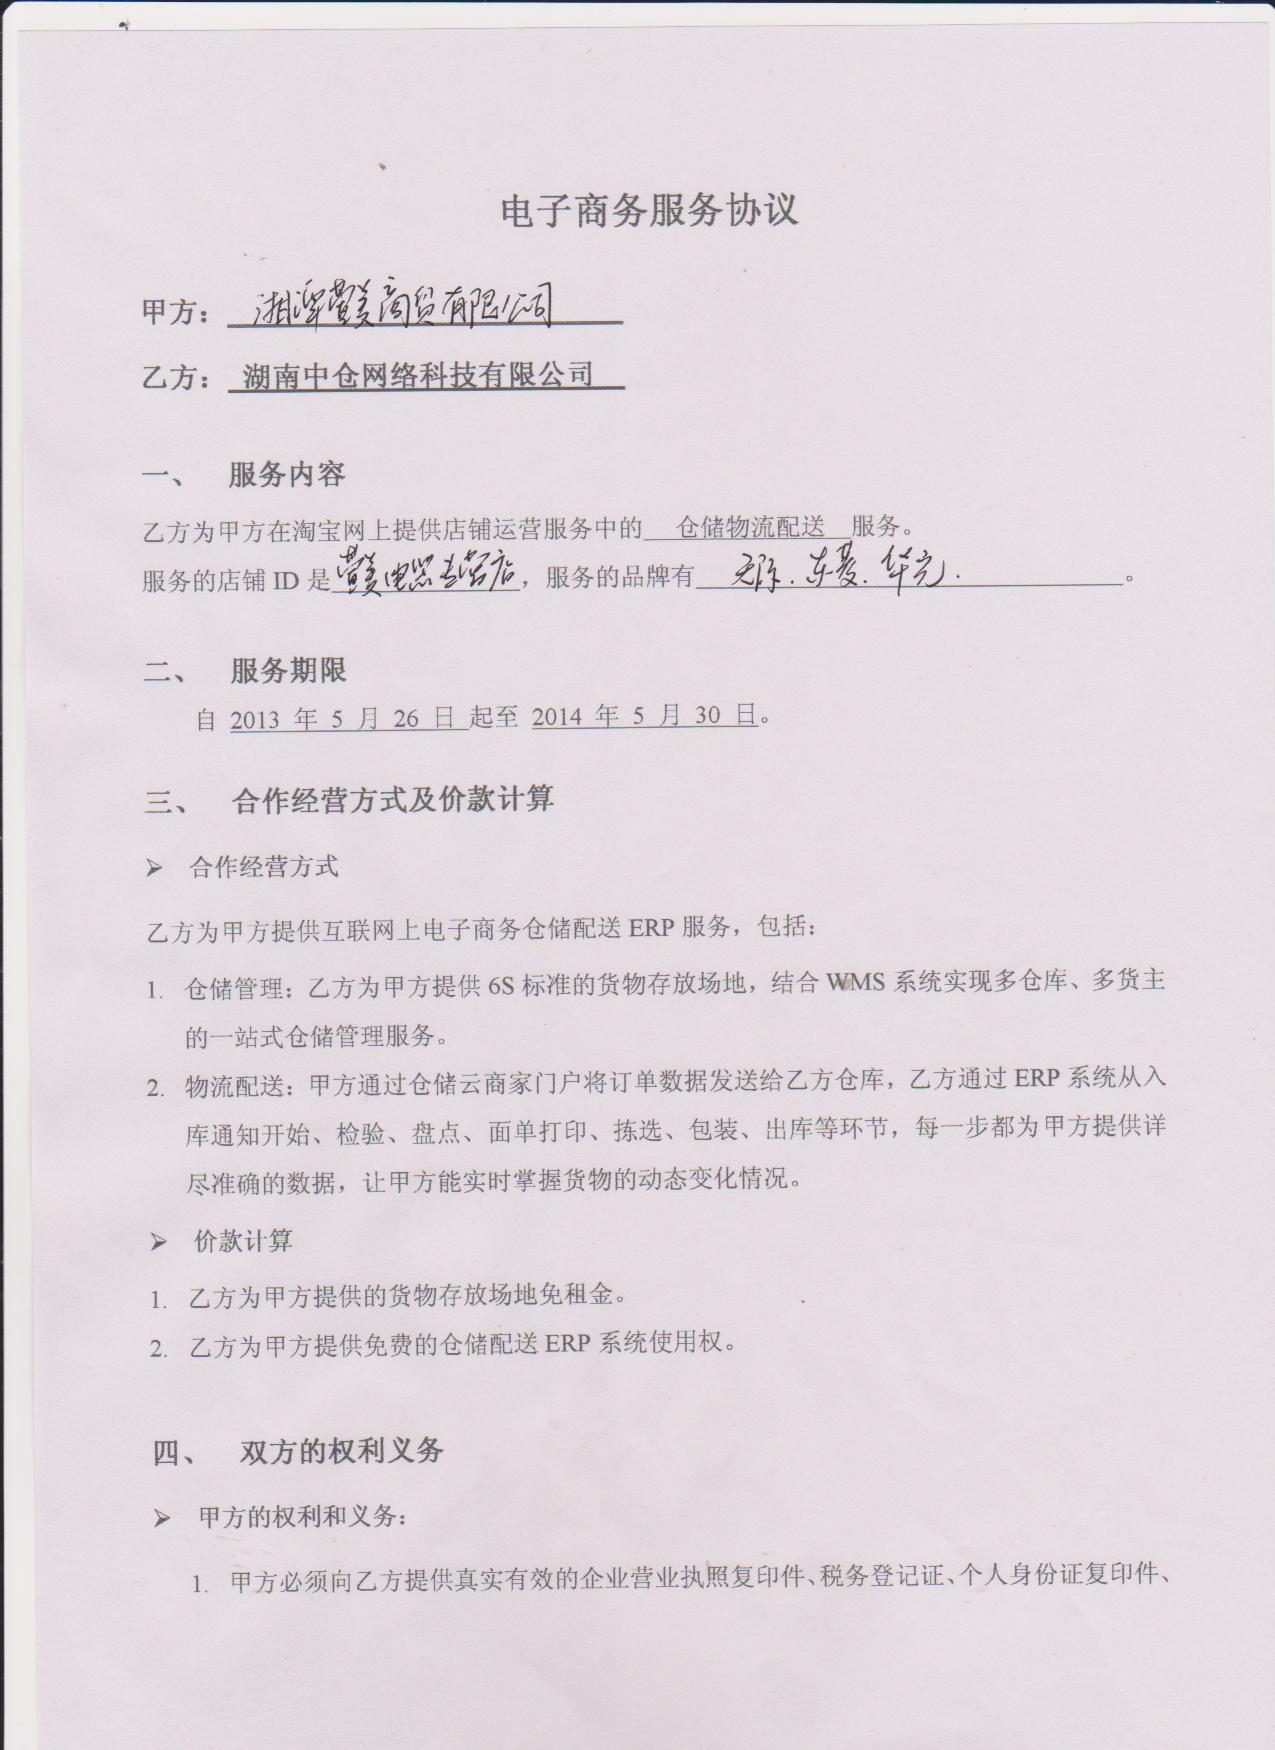 电子商务服务协议
甲方： 湘潭商贸有限公司
乙方： 湖南中仓网络科技有限公司
一、 服务内容
乙方为甲方在淘宝网上提供店铺运营服务中的 仓储物流配送 服务。
服务的店铺 ID 是电器专营店，服务的品牌有 东菱. 。
二、 服务期限
自 2013 年 5 月 26 日 起至 2014 年 5 月 30 日。
三、 合作经营方式及价款计算
➢ 合作经营方式
乙方为甲方提供互联网上电子商务仓储配送 ERP 服务，包括：
1. 仓储管理：乙方为甲方提供 6S 标准的货物存放场地，结合 WMS 系统实现多仓库、多货主
的一站式仓储管理服务。
2. 物流配送：甲方通过仓储云商家门户将订单数据发送给乙方仓库，乙方通过 ERP 系统从入
库通知开始、检验、盘点、面单打印、拣选、包装、出库等环节，每一步都为甲方提供详
尽准确的数据，让甲方能实时掌握货物的动态变化情况。
➢ 价款计算
1. 乙方为甲方提供的货物存放场地免租金。
2. 乙方为甲方提供免费的仓储配送 ERP 系统使用权。
四、 双方的权利义务
➢ 甲方的权利和义务：
1. 甲方必须向乙方提供真实有效的企业营业执照复印件、税务登记证、个人身份证复印件、